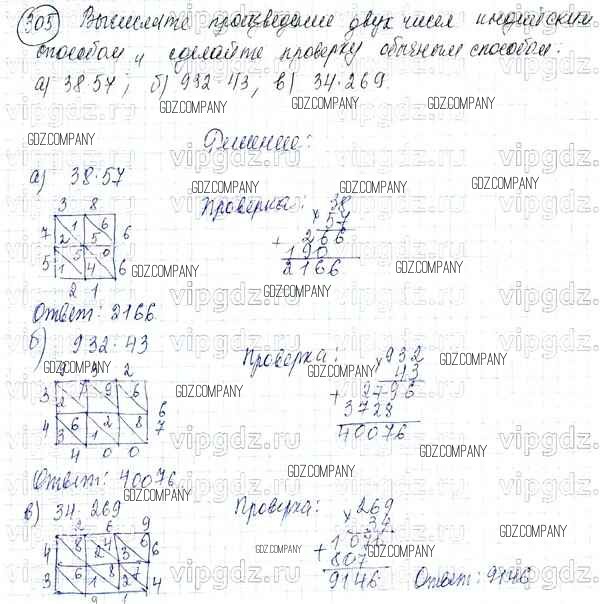 305 Вычислите произведение двух чисел индийским
способом и сделайте проверку обычным способом:
а) 38·57; б) 932·43, в) 34·269.
GDZ.COMPANY GDZ.COMPANY GDZ.COMPANY GDZ.COMPANY
Решение:
а) 38·57
GDZ.COMPANY GDZ.COMPANY
3 8
7 1 6 6
2 5
5 5 0 6
1 4
2 1
Проверка: 38
× 57
+ 266
190
2166
GDZ.COMPANY GDZ.COMPANY
vipgdz.ru vipgdz.ru
Ответ: 2166.
б) 932·43
9 3 2
3 7 9 6 6
2
4 6 2 8 7
3 1
4 0 0
Проверка: 932
× 43
+ 2796
3728
40076
GDZ.COMPANY GDZ.COMPANY
Ответ: 40076.
в) 34·269
2 6 9
4 8 4 6 6
2 3
3 6 8 7 4
1 2
9 1
Проверка: 269
× 34
+ 1076
807
9146
Ответ: 9146
GDZ.COMPANY GDZ.COMPANY